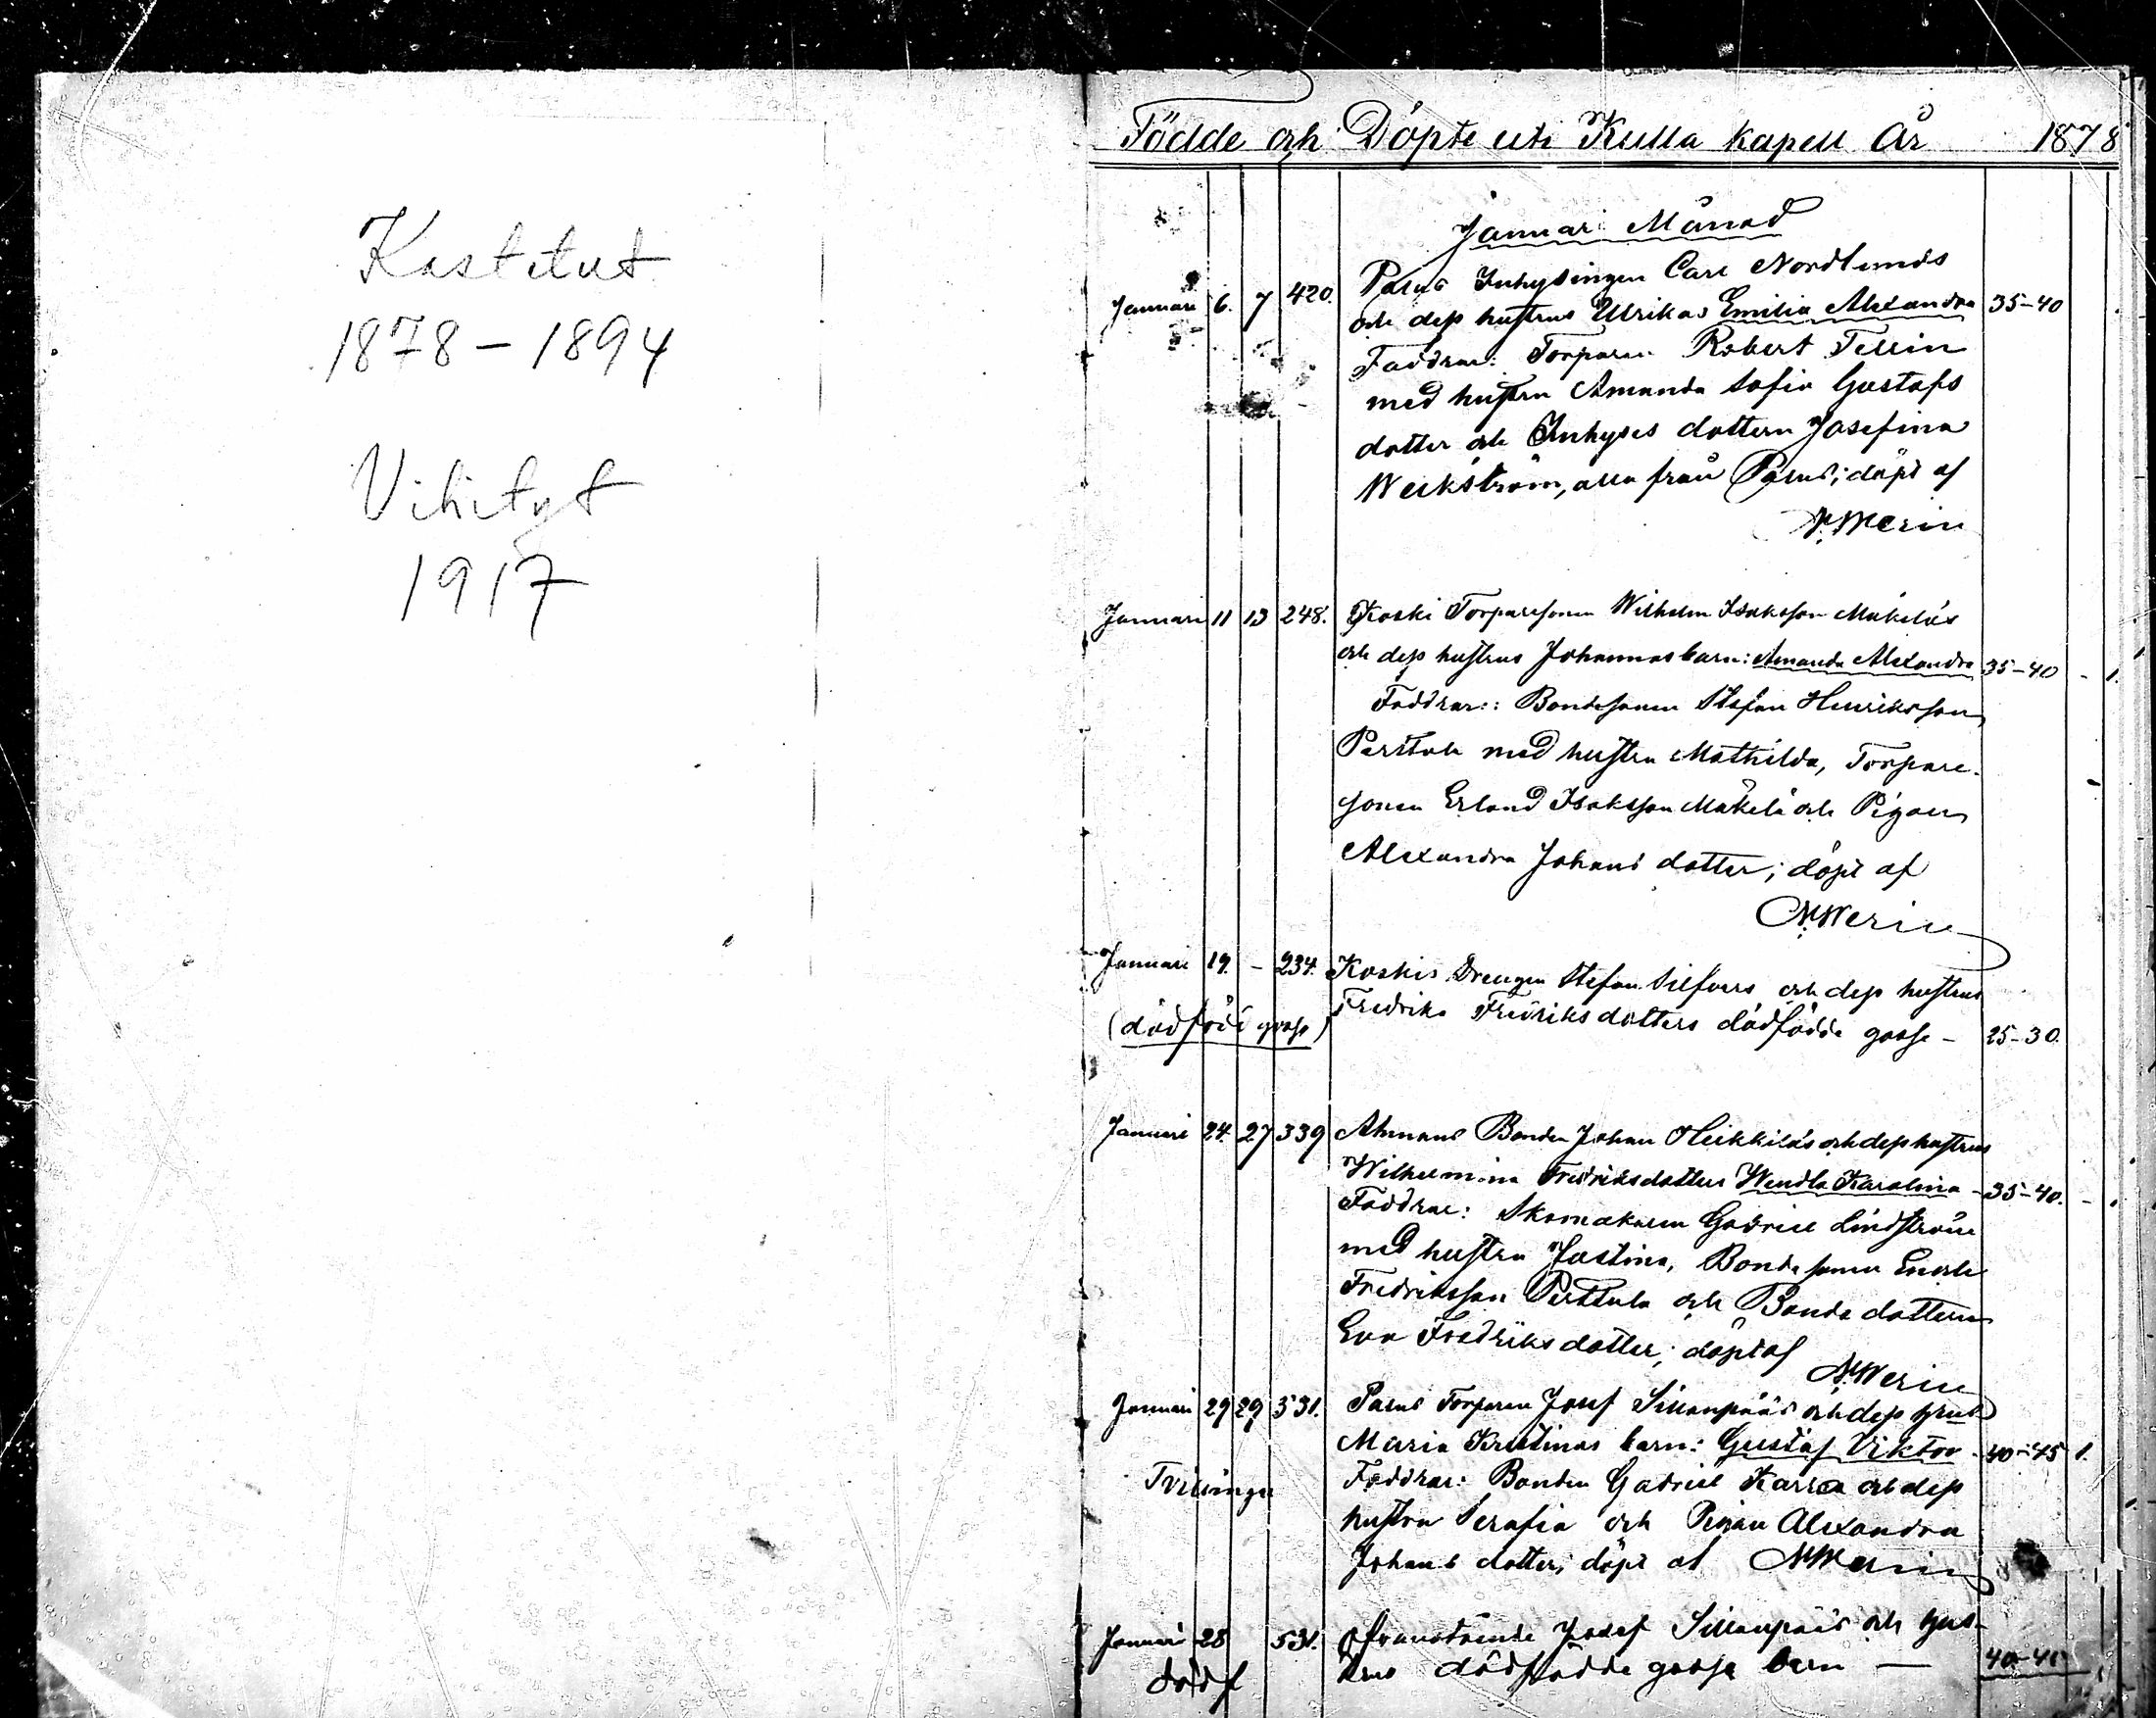 Kastetut
1878 - 1894
Vihityt
1917
Födde och Döpte uti Kulla kapell År 1878
Januari Månad
Januari 6. 7 420. Palus Inhysingen Carl Nordlunds
och dess hustrus Ulrikas Emilia Alexandra 35-40
Faddrar: Torparen Robert Tellin
med hustru Amanda Sofia Gustafs
dotter och Inhyses dottern Josefina
Weckström, alla från Palus; döpt af
N. Werin
Januari 11 13 248. Koski Torparesonen Wilhelm Isaksson Mäkeläs
och dess hustrus Johannas barn: Amanda Alexandra 35-40 - 1.
Faddrar: Bondesonen Stefan Henriksson
Perttula med hustru Mathilda, Torpare-
sonen Erland Isaksson Mäkelä och Pigan
Alexandra Johans dotter; döpt af
N. Werin
Januari 19. - 234. Koskis Drengen Stefan Silfvers och dess hustrus
(dödfödd gosse) Fredrika Fredriksdotters dödfödde gosse - 25-30.
Januari 24. 27 339 Ahmaus Bonden Johan Heikkiläs och dess hustrus
Wilhelmina Fredriksdotters Wendla Karolina - 35-40. - 1
Faddrar: Skomakaren Gabriel Lindström
med hustru Justina, Bonde sonen Enok
Fredriksson Perttula och Bonde dottern
Eva Fredriks dotter; döpt af
N. Werin
Januari 29 29 531. Palus Torparen Josef Sillanpääs och dess hustrus
Maria Kristinas barn: Gustaf Viktor - 40-45 1.
Tvillingar Faddrar: Bonden Gabriel Karra och dess
hustru Serafia och Pigan Alexandra
Johans dotter; döpt af N. Werin
Januari 28 531. Ofvanstående Josef Sillanpääs och hus-
dödf trus dödfödde gosse barn — 40-45 1